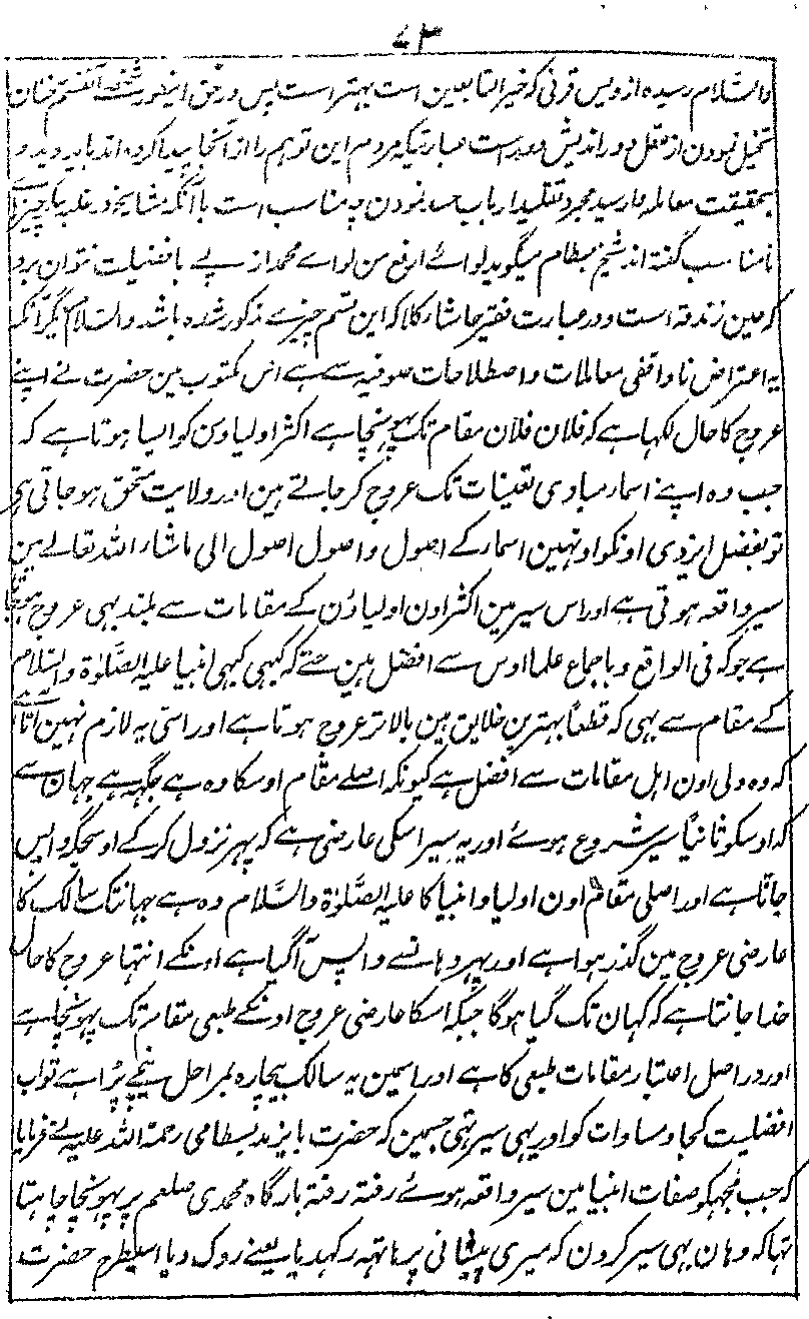 ۷۳
والسلام رسیده از ویس قرنی که خیر التابعین است بهتر است پس در حق اینطور شخصے آنقسم سخنان
تخیل نمودن از عقل دور اندیش دور است عبارتیکه مردم این توهم را از آنجا پیدا کرده اند باید دید و
بحقیقت معامله وا رسید مجرد تقلید ارباب حسد نمودن چه مناسب است با آنکه مشایخ در غلبه چیزهاے
نامناسب گفته اند شیخ بسطام میگوید لوائے ارفع من لواے محمد از پے با فضیلت نتوان برد
که عین زندقه است و در عبارت فقیر حاشا و کلا که این قسم چیزے مذکور شده باشد والسلام
یہ اعتراض ناواقفی معاملات و اصطلاحات صوفیہ سے ہے اس مکتوب مین حضرت نے اپنے
عروج کا حال لکہا ہے کہ فلان فلان مقام تک پہونچا ہے اکثر اولیاون کو ایسا ہوتا ہے کہ
جب وہ اپنے اسمار مبادی تعینات تک عروج کر جاتے ہین اور ولایت متحقق ہوجاتی ہی
تو بفضل ایزدی اونکو اونہین اسمار کے اصول و اصول اصول الی ماشار اللہ تعالے مین
سیر واقعہ ہوتی ہے اور اس سیر مین اکثر اون اولیاؤن کے مقامات سے بلند بہی عروج ہوجاتا
ہے جو کہ فی الواقع و باجماع علما اوس سے افضل ہین حتے کہ کبہی کبہی انبیا علیہ الصلوٰۃ والسلام
کے مقام سے بہی کہ قطعاً بہترین خلایق ہین بالاتر عروج ہوتا ہے اور اسی یہ لازم نہین آتا ہے
کہ وہ ولی اون اہل مقامات سے افضل ہے کیونکہ اصلے مقام اوسکا وہ ہے جگہ ہے جہان سے
کہ اوسکو ثانیاً سیر شروع ہوئے اور یہ سیر اسکی عارضی ہے کہ پہر نزول کرکے اوسجگہ واپس
جاتا ہے اور اصلی مقام اون اولیا و انبیا کا علیہ الصلوٰۃ والسلام وہ ہے جہانتک سالک کا
عارضی عروج مین گذر ہوا ہے اور پہر وہانسے واپس آگیا ہے اونکے انتہا عروج کا حال
خدا جانتا ہے کہ کہان تک گیا ہوگا جبکہ اسکا عارضی عروج اونکے طبعی مقام تک پہونچا ہے
اور دراصل اعتبار مقامات طبعی کا ہے اور اسمین یہ سالک بیچارہ بمراحل نیچے پڑا ہے تو اب
افضلیت کجا و مساوات کو اور یہی سیر تہی جسمین کہ حضرت بایزید بسطامی رحمۃ اللہ علیہ نے فرمایا
کہ جب مجہکو صفات انبیا مین سیر واقعہ ہوئے رفتہ رفتہ بارگاہ محمدی صلعم پر پہونچا چاہتا
تہا کہ وہان بہی سیر کرون کہ میری پیشانی پر ہاتہہ رکہدیا یعنے روک دیا اسیطرح حضرت